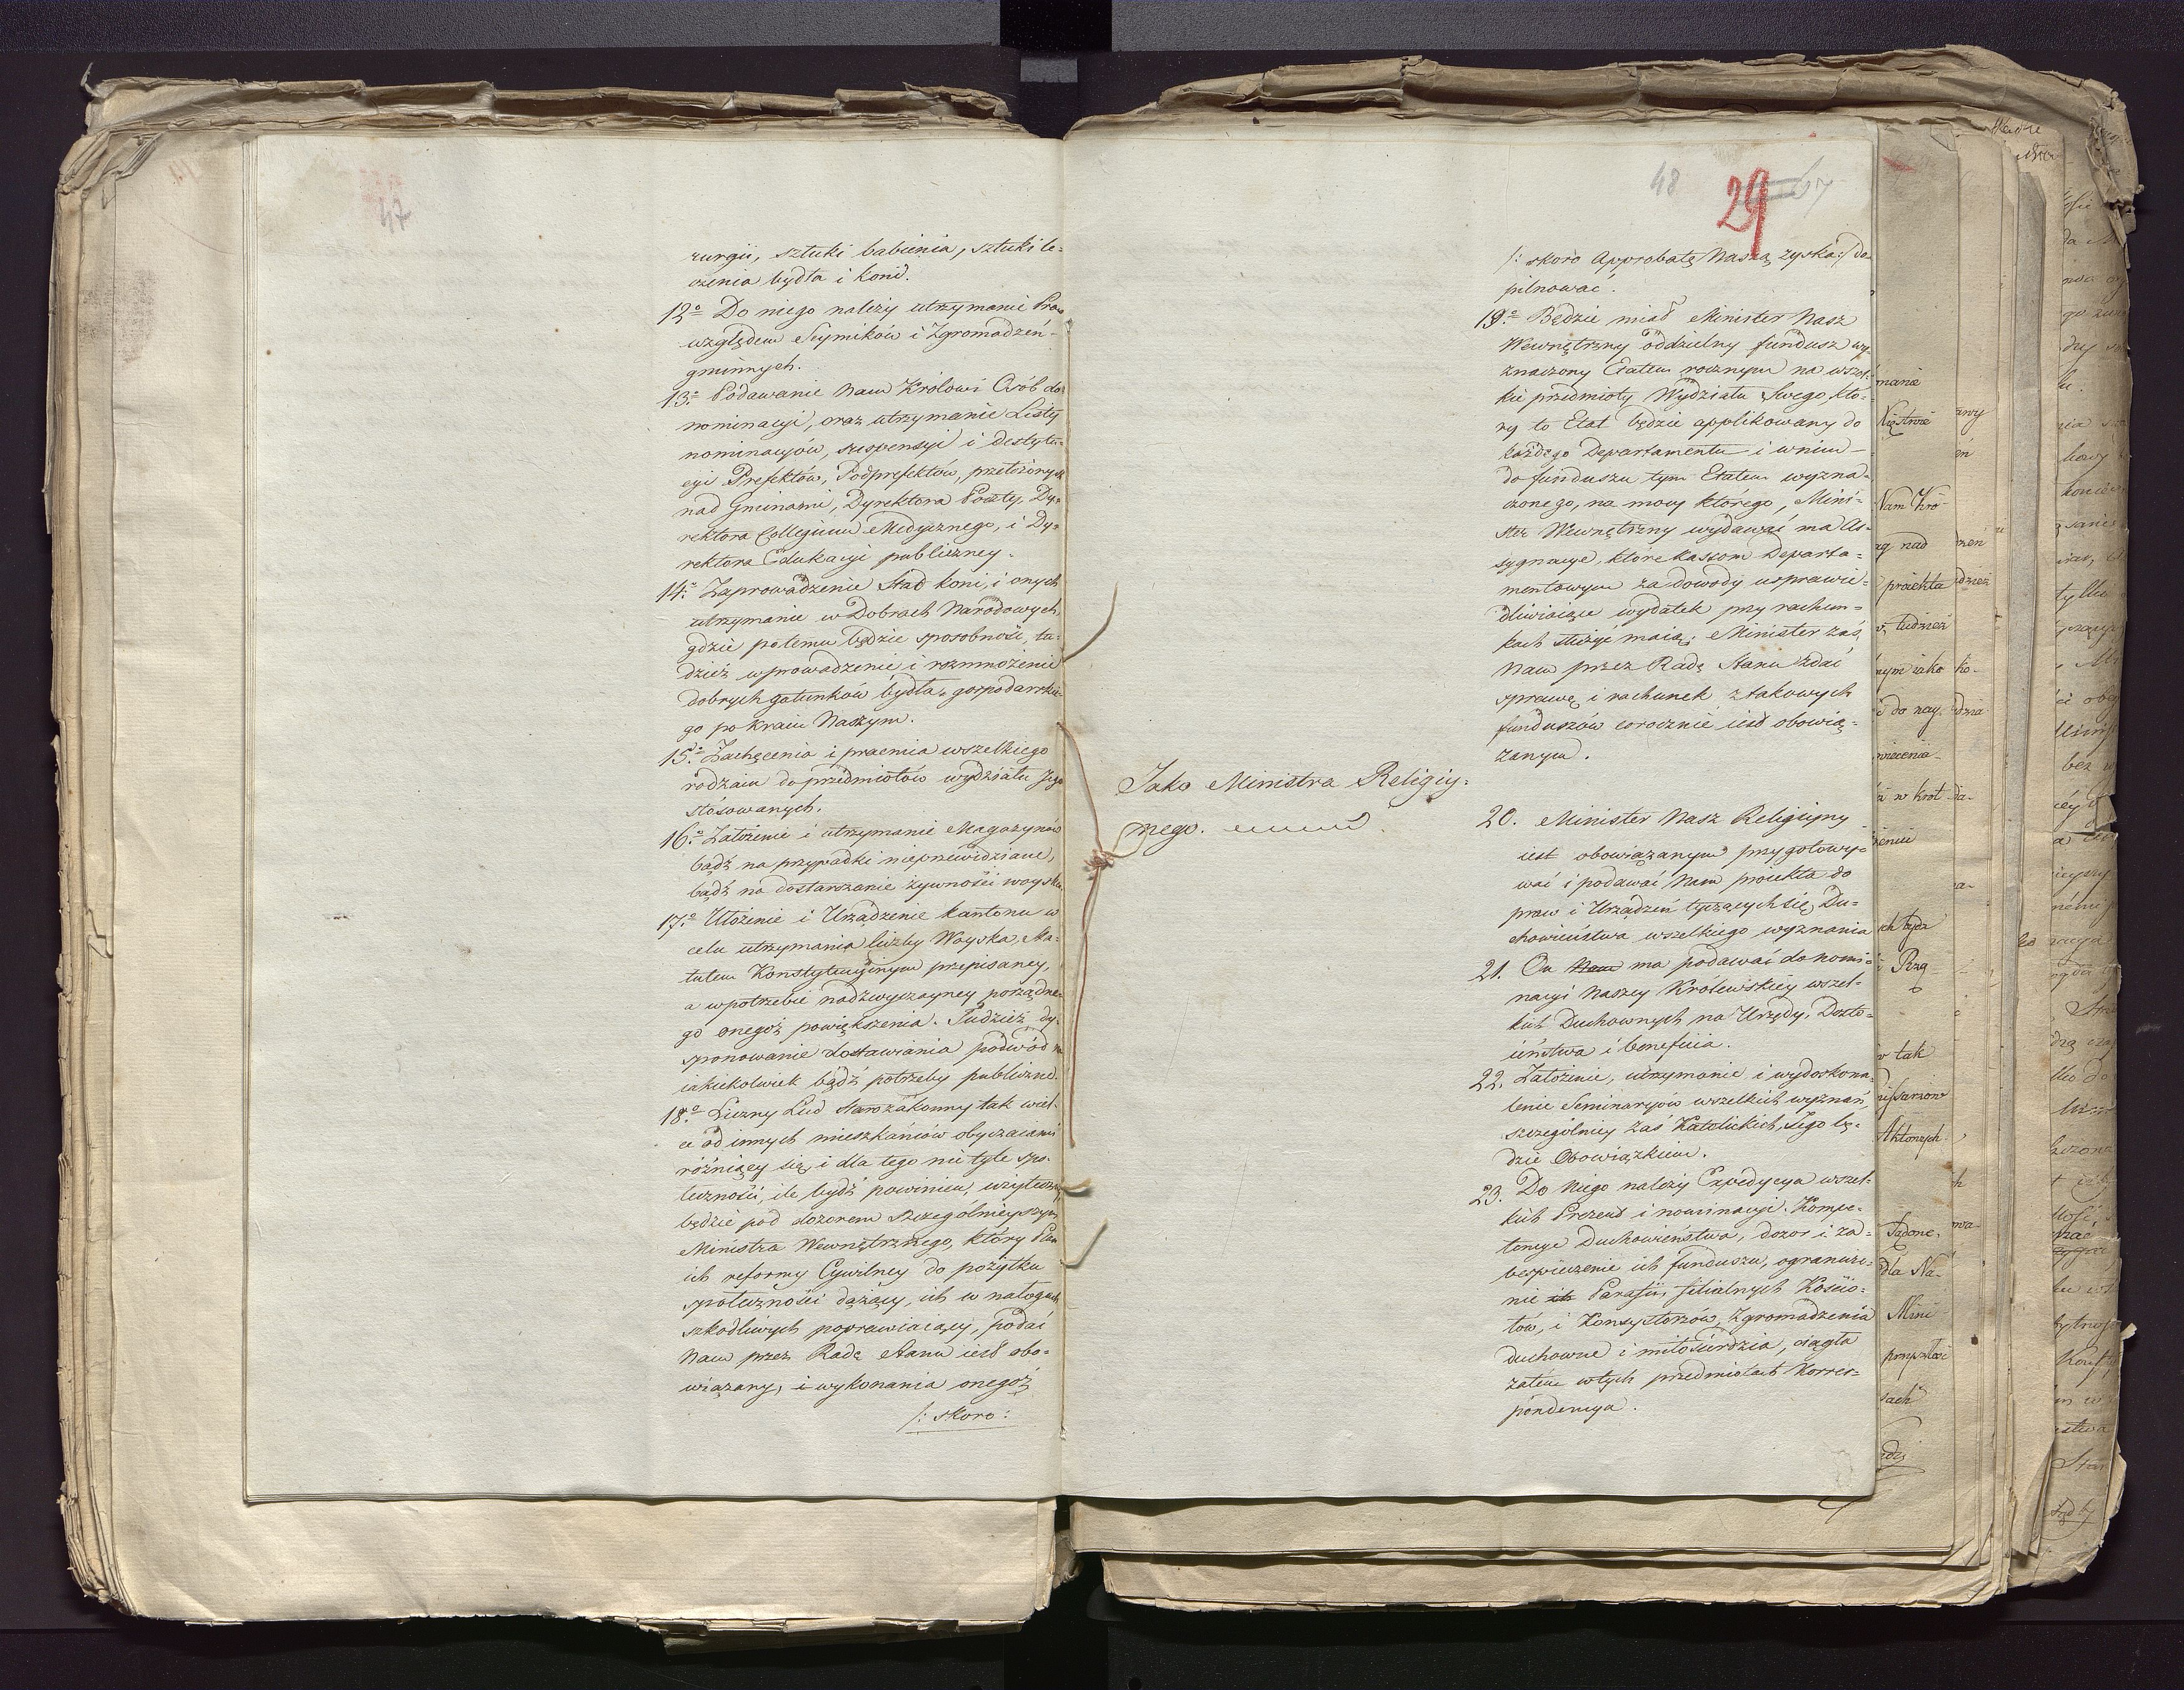 47
rurgii, sztuki babienia, sztuki le=
czenia bydła i koni.
12o Do niego należy utrzymanie Praw
względem Seymików i Zgromadzeń
gminnych.
13o Podawanie Nam Królowi Osób do
nominacyi, oraz utrzymanie Listy
nominacyów, suspensyi i destytu=
cyi Prefektów, Podprefektów, przełożonych
nad Gminami, Dyrektora Poczty, Dy=
rektora Collegium Medycznego, i Dy=
rektora Edukacyi publiczney.
14o Zaprowadzenie Stad koni, i onych
utrzymanie w Dobrach Narodowych
gdzie potemu będzie sposobność, tu=
dzież wprowadzenie i rozmnożenie
dobrych gatunków bydła gospodarskie=
go po Kraiu Naszym.
15o Zachęcenia i praemia wszelkiego
rodzaiu do przedmiotów wydziału Jego
stósowanych.
16o Założenie i utrzymanie Magazynów
bądź na przypadki nieprzewidziane,
bądź na dostarczanie żywności woysku.
17o Ułożenie i Urządzenie kantonu w
celu utrzymania liczby Woyska, Sta=
tutem Konstytucyinym przepisaney,
a w potrzebie nadzwyczayney porządne=
go onegoż powiększenia. Tudzież dy=
sponowanie dostawiania podwód na
iakiekolwiek bądź potrzeby publiczne.
18o Liczny Lud Starozakonny tak wiel=
ce od innych mieszkańców obyczaiami
różniący się, i dla tego nie tyle spo=
łeczności, ile bydź powinien, użyteczny
będzie pod dozorem szczególnieyszym
Ministra Wewnętrznego, który Plan
ich reformy Cywilney do pożytku
społeczności dążący, ich w nałogach
szkodliwych poprawiaiący, podać
Nam przez Radę Stanu iest obo=
wiązany, i wykonania onegoż
/: skoro:
48 29 57
/: skoro Approbatę Naszą zyska :/ do=
pilnować.
19o Będzie miał Minister Nasz
Wewnętrzny oddzielny fundusz wy=
znaczony Etatem rocznym na wszel=
kie przedmioty Wydziału Swego, któ=
ry to Etat będzie applikowany do
każdego Departamentu i w nim
do funduszu tym Etatem wyzna=
czonego, na mocy którego, Mini=
ster Wewnętrzny wydawać ma As=
sygnacye, które kassom Departa=
mentowym za dowody usprawie=
dliwiaiące wydatek przy rachun=
kach służyć maią; Minister zaś
Nam przez Radę Stanu zdać
sprawę i rachunek z takowych
funduszów corocznie iest obowią=
zanym.
Jako Ministra Religiy=
nego.
20. Minister Nasz Religiyny
iest obowiązanym przygotowy=
wać i podawać Nam proiekta do
praw i Urządzeń tyczących się Du=
chowieństwa wszelkiego wyznania
21. On Nam ma podawać do nomi=
nacyi Naszey Krolewskiey wszel=
kich Duchownych na Urzędy, Dosto=
ieństwa i beneficia.
22. Założenie, utrzymanie i wydoskona=
lenie Seminaryów wszelkich wyznań,
szczególniey zaś Katolickich, Jego bę=
dzie Obowiązkiem.
23. Do Niego należy Expedycya wszel=
kich Prezent i nominacyi. Kompe=
tencye Duchowieństwa, dozor i za=
bespieczenie ich funduszu, ogranicze=
nie ich Parafii, filialnych Kościo=
łów, i Konsystorzów, Zgromadzenia
duchowne i miłosierdzia, ciągła
zatem w tych przedmiotach Korres=
pondencya.